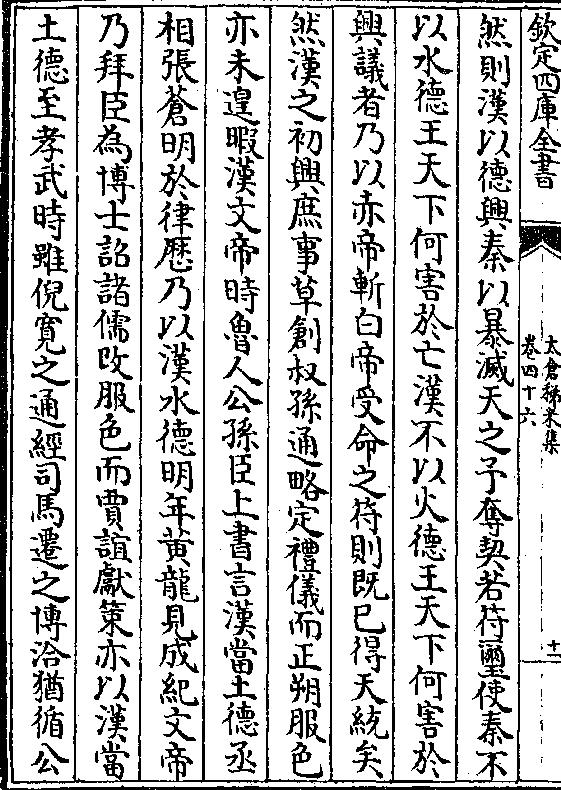 欽定四庫全書
太倉稊米集
卷四十六
十一
然則漢以德興秦以暴滅天之予奪契若符璽使秦不
以水德王天下何害於亡漢不以火德王天下何害於
興議者乃以赤帝斬白帝受命之符則既已得天統矣
然漢之初興庶事草創叔孫通略定禮儀而正朔服色
亦未遑暇漢文帝時魯人公孫臣上書言漢當土德丞
相張蒼明於律厯乃以漢水德明年黄龍見成紀文帝
乃拜臣為博士詔諸儒改服色而賈誼獻策亦以漢當
土德至孝武時雖倪寛之通經司馬遷之博洽猶循公